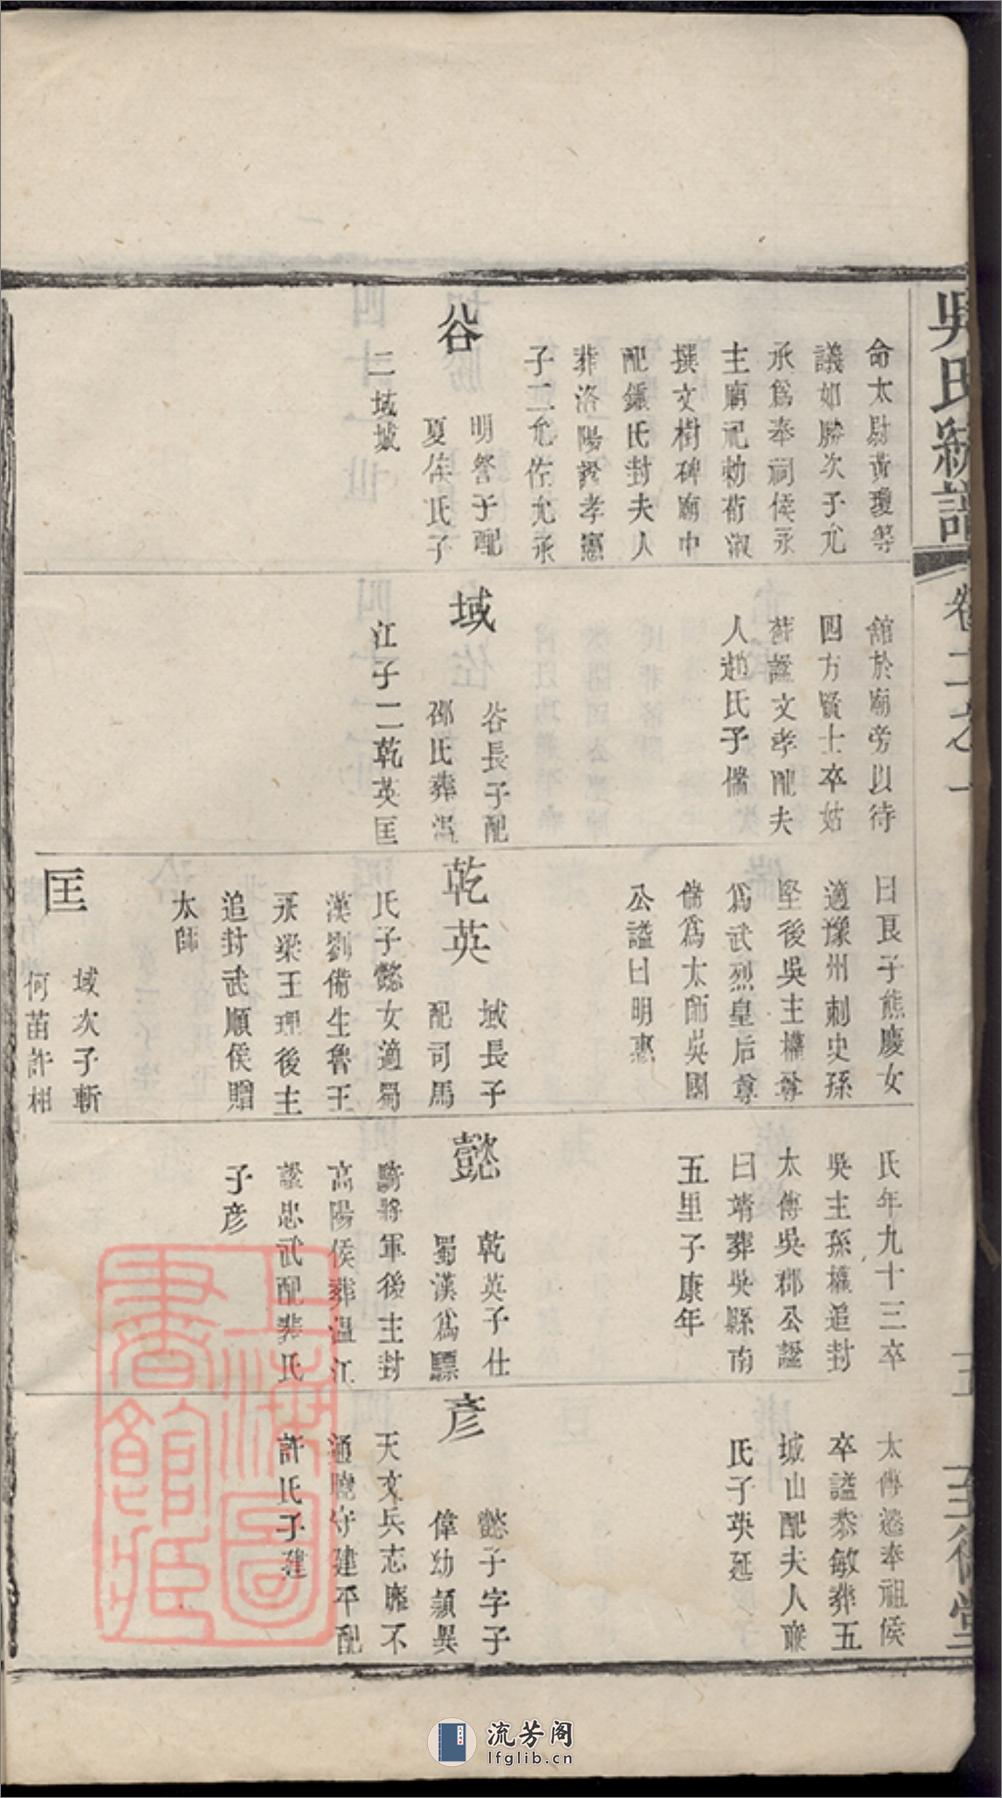 吳氏統譜
卷二之一
至德堂
命太尉黃瓊等
議如勝次子允
承爲奉祠侯永
主廟祀勅荀淑
撰文樹碑廟中
配鍾氏封夫人
葬洛陽諡孝憲
子二允佐允承
谷
明詧子配
夏侯氏子
二域
舘於廟旁以待
四方賢士卒姑
蘇諡文孝配夫
人趙氏子儁
域
谷長子配
邵氏葬溫
江子二乾英匡
曰艮子熊慶女
適豫州刺史孫
堅後吳主權尊
爲武烈皇后尊
儁爲太師吳國
公諡曰明惠
乾英
域長子
配司馬
氏子懿女適蜀
漢劉備生魯王
永梁王理後主
追封武順侯贈
太師
匡
域次子斬
何苗許相
氏年九十三卒
吳主孫權追封
太傅吳郡公諡
曰靖葬吳縣南
五里子康年
懿
乾英子仕
蜀漢爲驃
騎將軍後主封
高陽侯葬溫江
諡忠武配裴氏
子彥
太傅遜奉祖侯
卒諡恭敏葬五
城山配夫人
氏子英延
彥
懿子字子
偉幼穎異
天文兵志靡不
通曉守建平配
許氏子建
上海圖書館藏
流芳阁
lfglib.cn